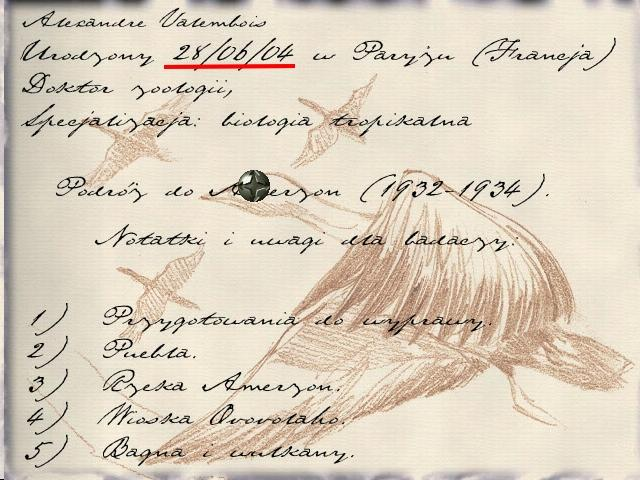 Alexandre Valembois
Urodzony 28/06/04 w Paryżu (Francja)
Doktor zoologii,
Specjalizacja: biologia tropikalna
Podróż do Amerzon (1932-1934).
Notatki i uwagi dla badaczy:
1) Przygotowania do wyprawy.
2) Puebla.
3) Rzeka Amerzon.
4) Wioska Ovovolaho.
5) Bagna i wulkany.